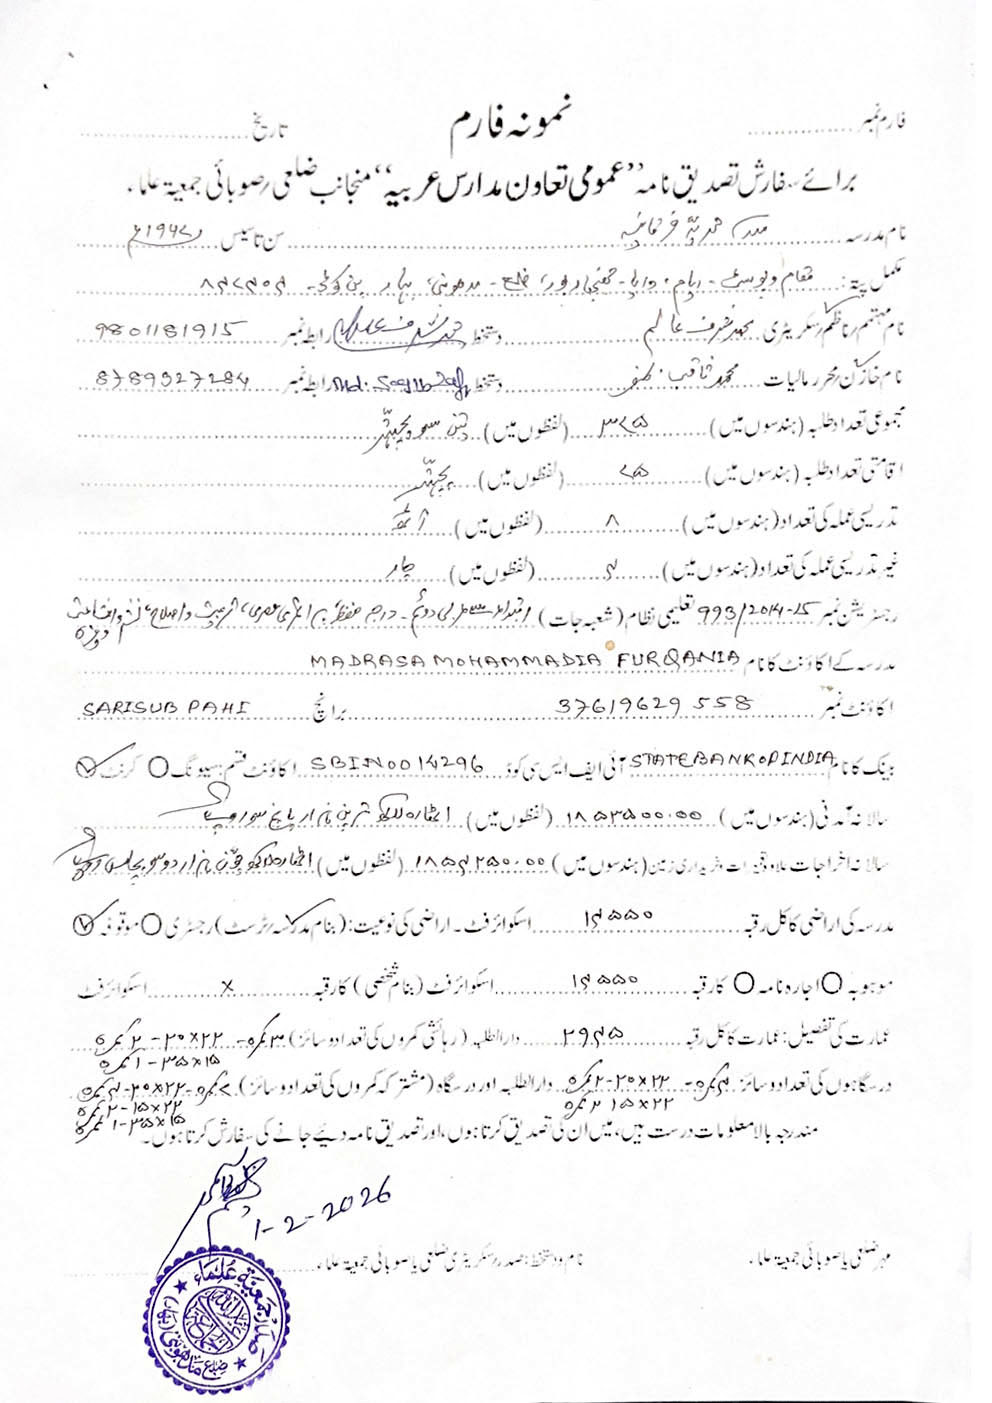 فارم نمبر ............... نمونہ فارم تاریخ ...............
برائے سفارش تصدیق نامہ ”عمومی تعاون مدارس عربیہ“ منجانب ضلعی رصوبائی جمعیۃ علماء۔
نام مدرسہ مدرسہ محمدیہ فرقانیہ سن تاسیس ۱۹۶۷ء
مکمل پتہ: مقام و پوسٹ - بھنجارپور، ضلع - مدھوبنی، بہار پن کوڈ -
نام مہتمم رناظم رسکریٹری محمد شرف عالم دستخط رابطہ نمبر 9801181915
نام خازن رمحرر مالیات محمد ثاقب ظفر دستخط Md. Saquib Zafar رابطہ نمبر 8789327284
مجموعی تعداد طلبہ (ہندسوں میں) ۳۷۵ (لفظوں میں) تین سو پچہتّر
اقامتی تعداد طلبہ (ہندسوں میں) ۷۵ (لفظوں میں) پچہتّر
تدریسی عملہ کی تعداد (ہندسوں میں) ۸ (لفظوں میں) آٹھ
غیر تدریسی عملہ کی تعداد (ہندسوں میں) ۴ (لفظوں میں) چار
رجسٹریشن نمبر 993/2014-15 تعلیمی نظام (شعبہ جات) ابتداء عربی دوئم - درجہ حفظ، عصری، تربیت و اصلاح، نشر و اشاعت وغیرہ
مدرسہ کے اکاؤنٹ کا نام MADRASA MOHAMMADIA FURQANIA
اکاؤنٹ نمبر 37619629558 برانچ SARISUB PAHI
بینک کا نام STATE BANK OF INDIA آئی ایف ایس سی کوڈ SBIN0014296 اکاؤنٹ قسم: سیونگ کرنٹ
سالانہ آمدنی (ہندسوں میں) ۱۸۵۳۵۰۰.۰۰ (لفظوں میں) اٹھارہ لاکھ ترپن ہزار پانچ سو روپے
سالانہ اخراجات علاوہ تعمیرات وخریداری زمین (ہندسوں میں) ۱۸۵۴۲۵۰.۰۰ (لفظوں میں) اٹھارہ لاکھ چوّن ہزار دو سو پچاس روپے
مدرسہ کی اراضی کا کل رقبہ ۱۴۵۵۰ اسکوائر فٹ۔ اراضی کی نوعیت: (بنام مدرسہ رٹرسٹ) رجسٹری موقوفہ
موہوبہ اجارہ نامہ کا رقبہ ۱۴۵۵۰ اسکوائر فٹ (بنام شخصی) کا رقبہ x اسکوائر فٹ
عمارت کی تفصیل: عمارت کا کل رقبہ ۳۹۴۵ دارالطلبہ (رہائشی کمروں کی تعداد وسائز) ۳ کمرہ - ۲۲x۲۰ - ۲ کمرہ
۱۵x۳۵ - ۱ کمرہ
درسگاہوں کی تعداد وسائز ۴ کمرہ - ۲۲x۲۰ - ۲ کمرہ دارالطلبہ اور درسگاہ (مشترکہ کمروں کی تعداد وسائز) ۷ کمرہ - ۲۲x۲۰ - ۴ کمرہ
۲۲x۱۵ ۲ کمرہ ۲۲x۱۵ - ۲ کمرہ
۱۵x۳۵ - ۱ کمرہ
مندرجہ بالا معلومات درست ہیں، میں ان کی تصدیق کرتا ہوں، اور تصدیق نامہ دیئے جانے کی سفارش کرتا ہوں۔
1-2-2026
مہر ضلعی یا صوبائی جمعیۃ علماء۔ نام و دستخط: صدر رسکریٹری ضلعی یا صوبائی جمعیۃ علماء۔
صدر جمعیۃ علماء
ضلع مدھوبنی (بہار)